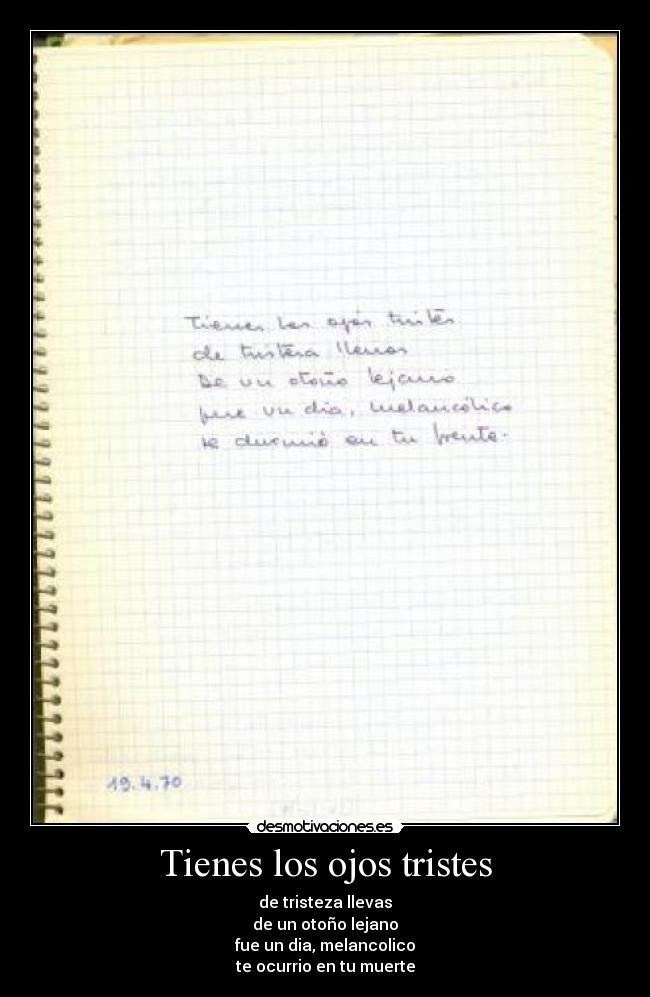 Tienes los ojos tristes
de tristeza llenos
De un otoño lejano
que un día, melancólico
se durmió en tu frente.
19.4.70
desmotivaciones.es
Tienes los ojos tristes
de tristeza llevas
de un otoño lejano
fue un dia, melancolico
te ocurrio en tu muerte